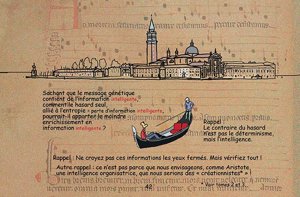 Sachant que le message génétique
contient de l'information intelligente,
comment le hasard seul,
allié à l'entropie = perte d'information intelligente,
pourrait-il apporter le moindre
enrichissement en
information intelligente ?
Rappel
Le contraire du hasard
n'est pas le déterminisme,
mais l'intelligence.
Rappel : Ne croyez pas ces informations les yeux fermés. Mais vérifiez tout !
Autre rappel : ce n'est pas parce que nous envisageons, comme Aristote,
une intelligence organisatrice, que nous serions des « créationnistes » !
42
* Voir tomes 2 et 3.